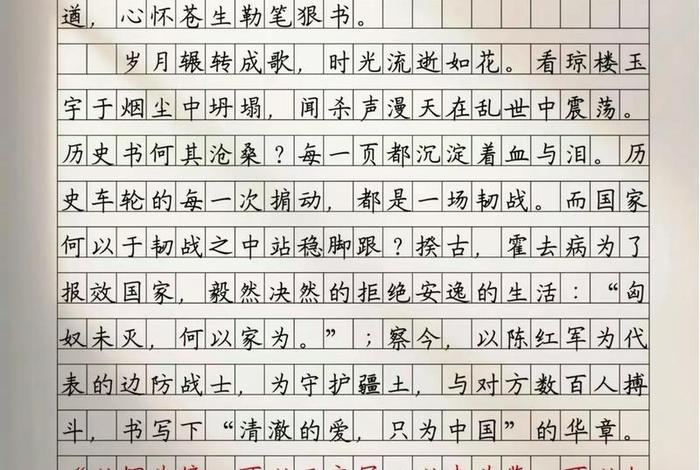 道，心怀苍生勒笔狠书。
岁月辗转成歌，时光流逝如花。看琼楼玉
宇于烟尘中坍塌，闻杀声漫天在乱世中震荡。
历史书何其沧桑？每一页都沉淀着血与泪。历
史车轮的每一次掮动，都是一场韧战。而国家
何以于韧战之中站稳脚跟？揆古，霍去病为了
报效国家，毅然决然的拒绝安逸的生活：“匈
奴未灭，何以家为。”；察今，以陈红军为代
表的边防战士，为守护疆土，与对方数百人搏
斗，书写下“清澈的爱，只为中国”的华章。